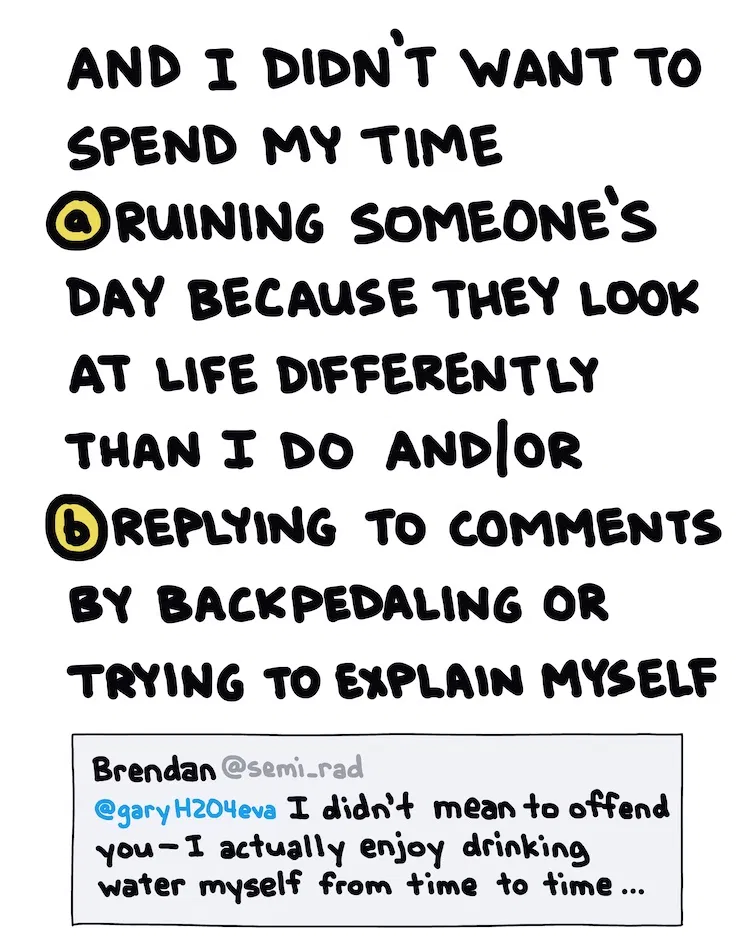 AND I DIDN'T WANT TO
SPEND MY TIME
a RUINING SOMEONE'S
DAY BECAUSE THEY LOOK
AT LIFE DIFFERENTLY
THAN I DO AND/OR
b REPLYING TO COMMENTS
BY BACKPEDALING OR
TRYING TO EXPLAIN MYSELF
Brendan @semi_rad
@garyH204eva I didn't mean to offend
you–I actually enjoy drinking
water myself from time to time...